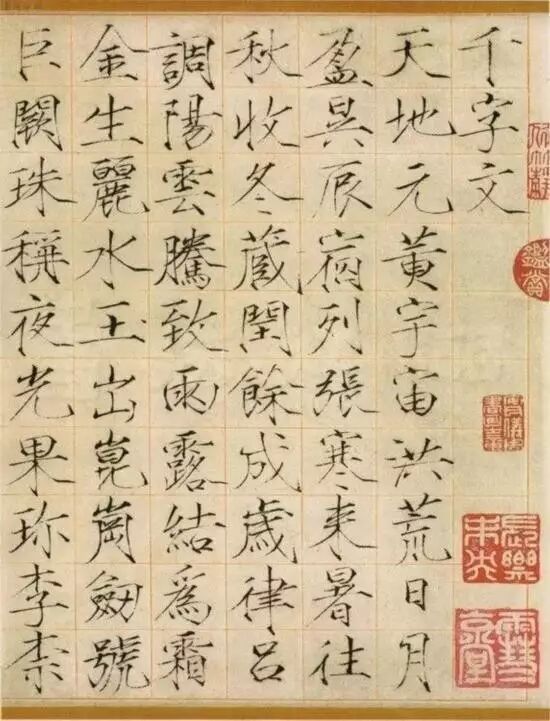 千字文
天地元黄宇宙洪荒日月
盈昃辰宿列張寒来暑往
秋收冬蔵閏餘成歲律呂
調陽雲騰致雨露結爲霜
金生麗水玉出崑崗劒號
巨闕珠稱夜光果珍李柰
鑑賞
長樂未央